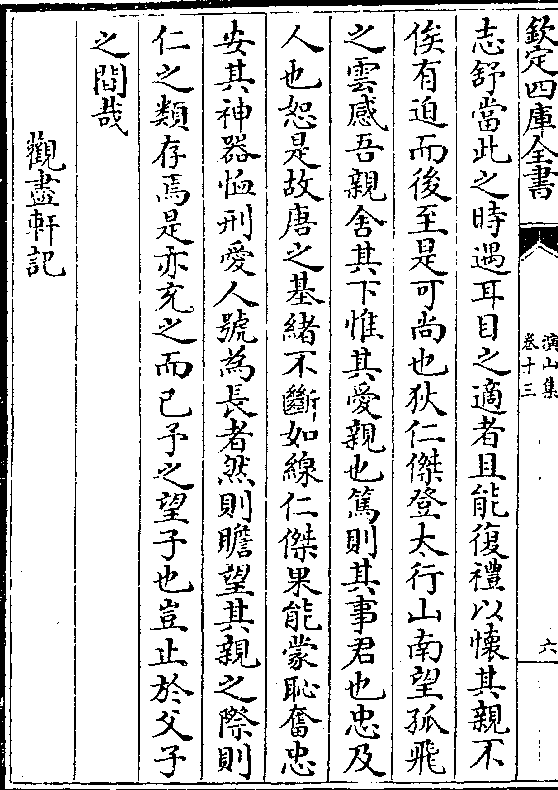 欽定四庫全書
演山集
卷十三
六
志舒當此之時遇耳目之適者且能復禮以懷其親不
俟有迫而後至是可尚也狄仁傑登太行山南望孤飛
之雲感吾親舍其下惟其愛親也篤則其事君也忠及
人也恕是故唐之基緒不斷如線仁傑果能蒙恥奮忠
安其神器恤刑愛人號為長者然則瞻望其親之際則
仁之類存焉是亦充之而已予之望子也豈止於父子
之間哉
觀盡軒記